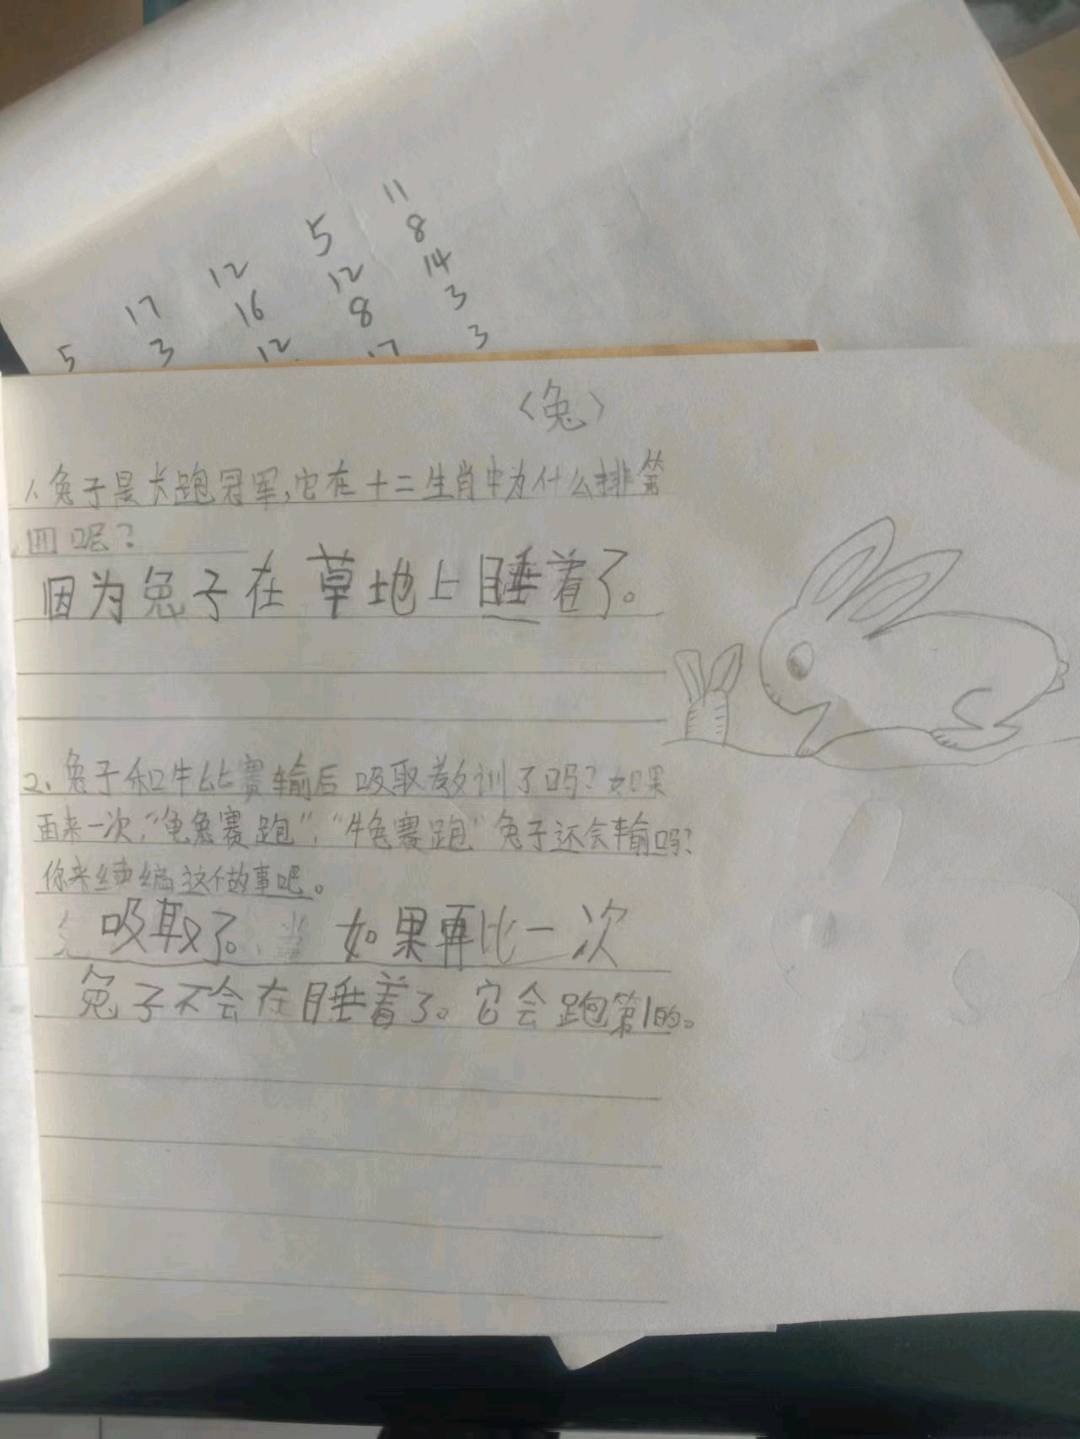 11
5 8
12 12 14
17 16 8 3
5 3 12 17 3
〈兔〉
1、兔子是长跑冠军,它在十二生肖中为什么排第
四呢?
因为兔子在草地上睡着了。
2、兔子和牛比赛输后吸取教训了吗?如果
再来一次,“龟兔赛跑”,“牛兔赛跑”兔子还会输吗?
你来续编这个故事吧。
吸取了。如果再比一次
兔子不会在睡着了。它会跑第1的。